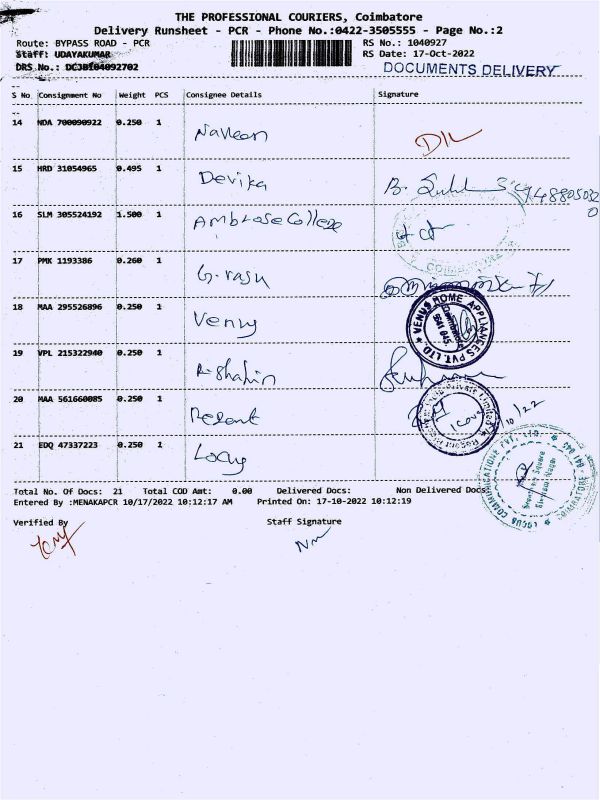 THE PROFESSIONAL COURIERS, Coimbatore
Delivery Runsheet - PCR - Phone No.:0422-3505555 - Page No.:2
Route: BYPASS ROAD - PCR RS No.: 1040927
Staff: UDAYAKUMAR RS Date: 17-Oct-2022
DRS No.: DCJBI04092702 DOCUMENTS DELIVERY
S No Consignment No Weight PCS Consignee Details Signature
14 NDA 700090922 0.250 1 Naveen
15 HRD 31054965 0.495 1 Devika
16 SLM 305524192 1.500 1 Ambrose College
17 PMK 1193386 0.260 1 G. rasu
18 MAA 295526896 0.250 1 Venus
VENUS HOME APPLIANCES PVT. LTD.
19 VPL 215322940 0.250 1
20 MAA 561660085 0.250 1
21 EDQ 47337223 0.250 1
LOCUS COMMUNICATIONS PVT. LTD
Total No. Of Docs: 21 Total COD Amt: 0.00 Delivered Docs: Non Delivered Docs
Entered By :MENAKAPCR 10/17/2022 10:12:17 AM Printed On: 17-10-2022 10:12:19
Verified By Staff Signature